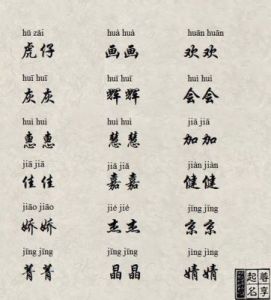 hǔ zǎi huà huà huān huān
虎仔 画画 欢欢
huī huī huī huī huì huì
灰灰 辉辉 会会
huì huì huì huì jiā jiā
惠惠 慧慧 加加
jiā jiā jiā jiā jiàn jiàn
佳佳 嘉嘉 健健
jiāo jiāo jié jié jīng jīng
娇娇 杰杰 京京
jīng jīng jīng jīng jīng jīng
菁菁 晶晶 婧婧
善享
起名